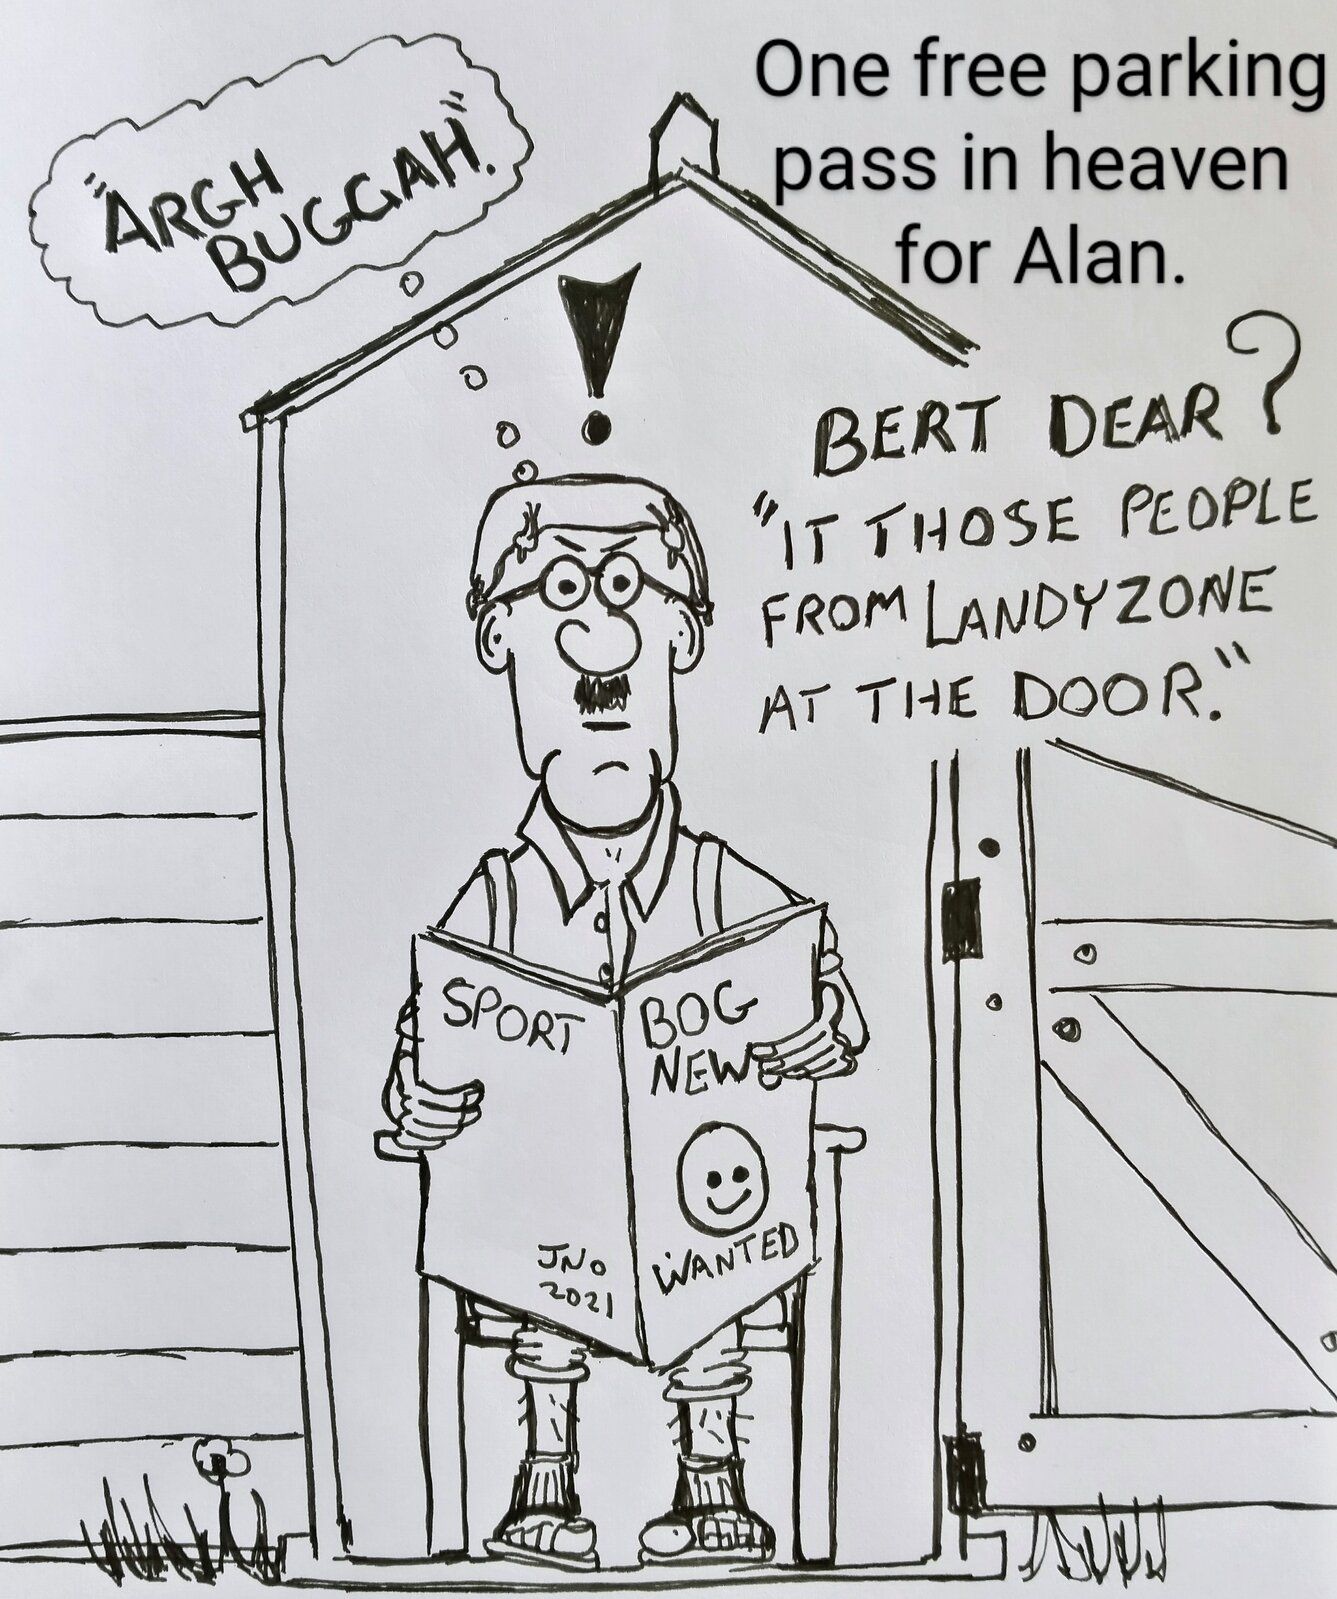 One free parking
pass in heaven
for Alan.
"ARGH
BUGGAH."
!
BERT DEAR?
"IT THOSE PEOPLE
FROM LANDYZONE
AT THE DOOR."
SPORT
JNO
2021
BOG
NEW
WANTED